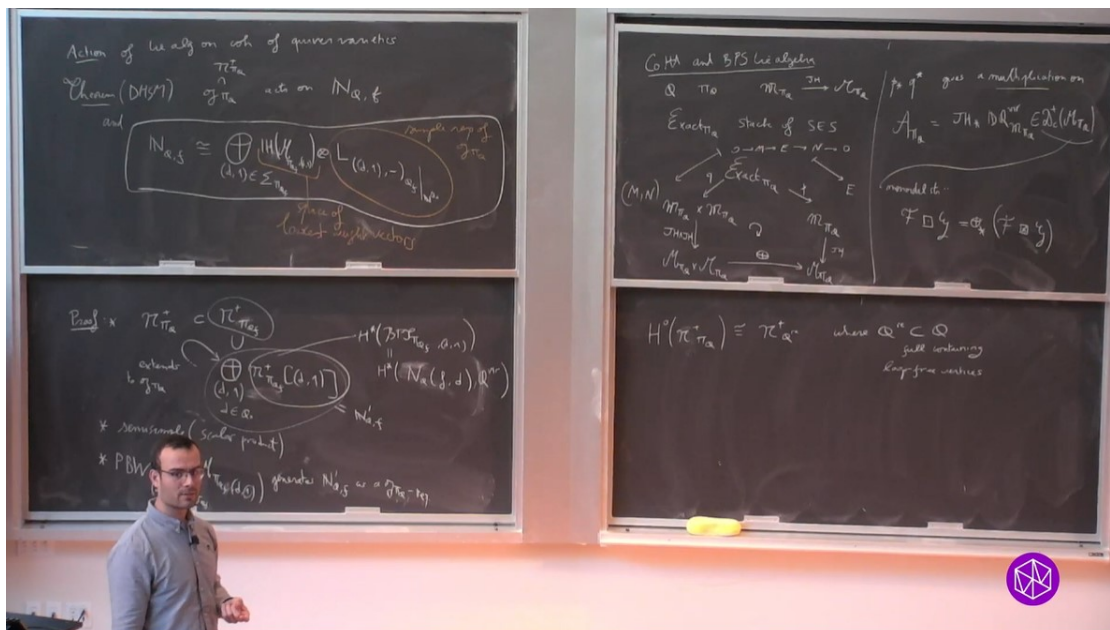 Action of Lie alg on coh of quiver varieties
Theorem (DHSM) 𝔤_{Π_Q} acts on ℕ_{Q,f}
𝔫⁺_{Π_Q}
and
ℕ_{Q,f} ≅ ⊕_{(d,1)∈Σ_{Π_{Q_f}}} IH(ℳ) ⊗ L_{((d,1),-)_{Q_f}|_{ℕ^{Q_0}}}
simple rep of 𝔤_{Π_Q}
space of
lowest weight vectors
Proof: * 𝔫⁺_{Π_Q} ⊂ 𝔫⁺_{Π_{Q_f}}
extends
to 𝔤_{Π_Q}
⊕_{(d,1)} 𝔫⁺_{Π_{Q_f}}[(d,1)]
= ℕ'_{Q,f}
H*(N_Q(f,d), ℚ^{vir})
* semisimple (scalar product)
* PBW
generates ℕ'_{Q,f} as a 𝔤_{Π_Q}-rep
CoHA and BPS Lie algebra
Q Π_Q 𝔐_{Π_Q} →^{JH} ℳ_{Π_Q}
Exact_{Π_Q} stack of SES
0→M→E→N→0
q Exact_{Π_Q} p
E
(M,N) 𝔐_{Π_Q} × 𝔐_{Π_Q} 𝔐_{Π_Q}
JH×JH JH
ℳ_{Π_Q} × ℳ_{Π_Q} →^{⊕} ℳ_{Π_Q}
p_* q^* gives a multiplication on
𝒜_{Π_Q} = JH_* 𝔻ℚ^{vir}_{𝔐_{Π_Q}} ∈ 𝒟_c^+(ℳ_{Π_Q})
monoidal str.
ℱ ⊡ 𝒢 = ⊕_* (ℱ ⊠ 𝒢)
H⁰(𝔫⁺_{Π_Q}) ≅ 𝔫⁺_{Q^{re}} where Q^{re} ⊂ Q
full containing
loop free vertices